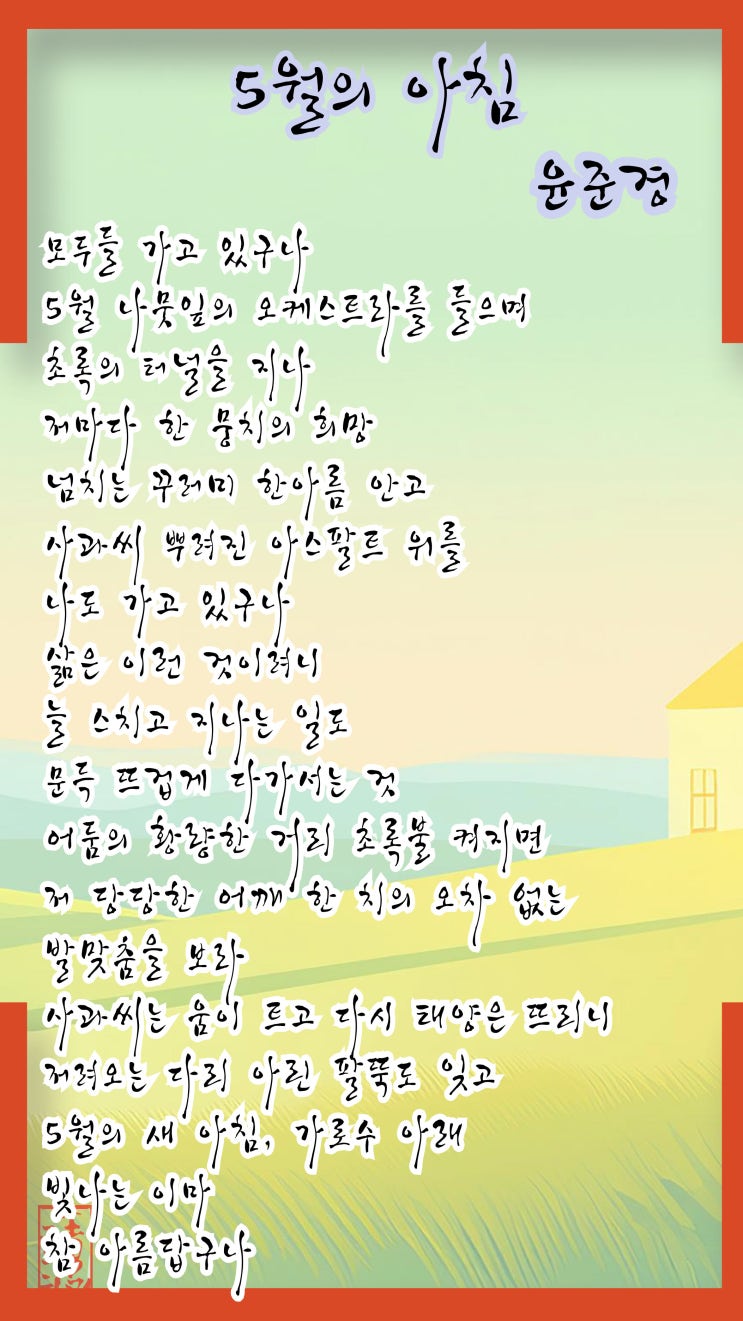 5월의 아침
윤준경
모두들 가고 있구나
5월 나뭇잎의 오케스트라를 들으며
초록의 터널을 지나
저마다 한 뭉치의 희망
넘치는 꾸러미 한아름 안고
사과씨 뿌려진 아스팔트 위를
나도 가고 있구나
삶은 이런 것이려니
늘 스치고 지나는 일도
문득 뜨겁게 다가서는 것
어둠의 황량한 거리 초록불 켜지면
저 당당한 어깨 한 치의 오차 없는
발맞춤을 보라
사과씨는 움이 트고 다시 태양은 뜨리니
저려오는 다리 아린 팔뚝도 잊고
5월의 새 아침, 가로수 아래
빛나는 이마
참 아름답구나